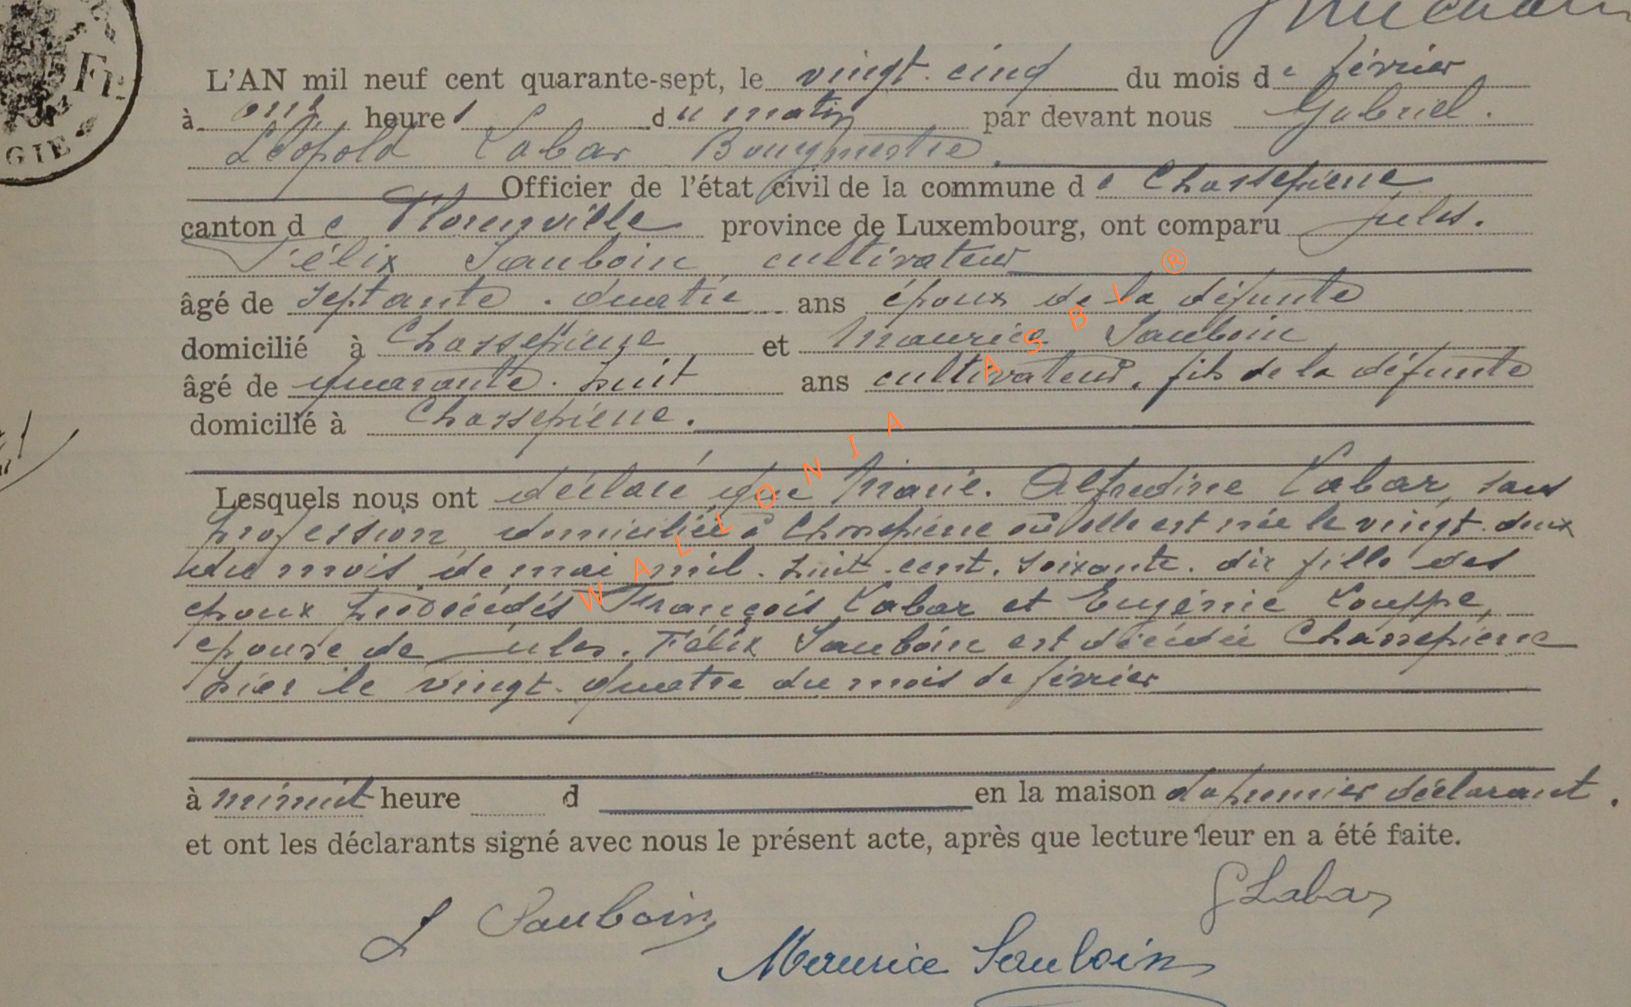 Fr.
GIE
L'AN mil neuf cent quarante-sept, le vingt-cinq du mois de février
à onze heures du matin par devant nous Gabriel.
Léopold Labar Bourgmestre.
Officier de l'état civil de la commune de Chassepierre
canton de Florenville province de Luxembourg, ont comparu Jules.
Félix Sauboin, cultivateur
âgé de septante-quatre ans époux de la défunte
domicilié à Chassepierre et Maurice Sauboin
âgé de quarante-huit ans cultivateur, fils de la défunte
domicilié à Chassepierre.
Lesquels nous ont déclaré que Marie. Alfredine Labar, sans
profession, domiciliée à Chassepierre où elle est née le vingt-deux
du mois de mai mil-huit-cent-soixante-dix fille des
époux prédécédés François Labar et Eugénie Louppe,
épouse de Jules. Félix Sauboin est décédée Chassepierre
hier le vingt-quatre du mois de février
à minuit heure d en la maison du premier déclarant.
et ont les déclarants signé avec nous le présent acte, après que lecture leur en a été faite.
J Sauboin
G Labar
Maurice Sauboin
WALLONIA ASBL ®